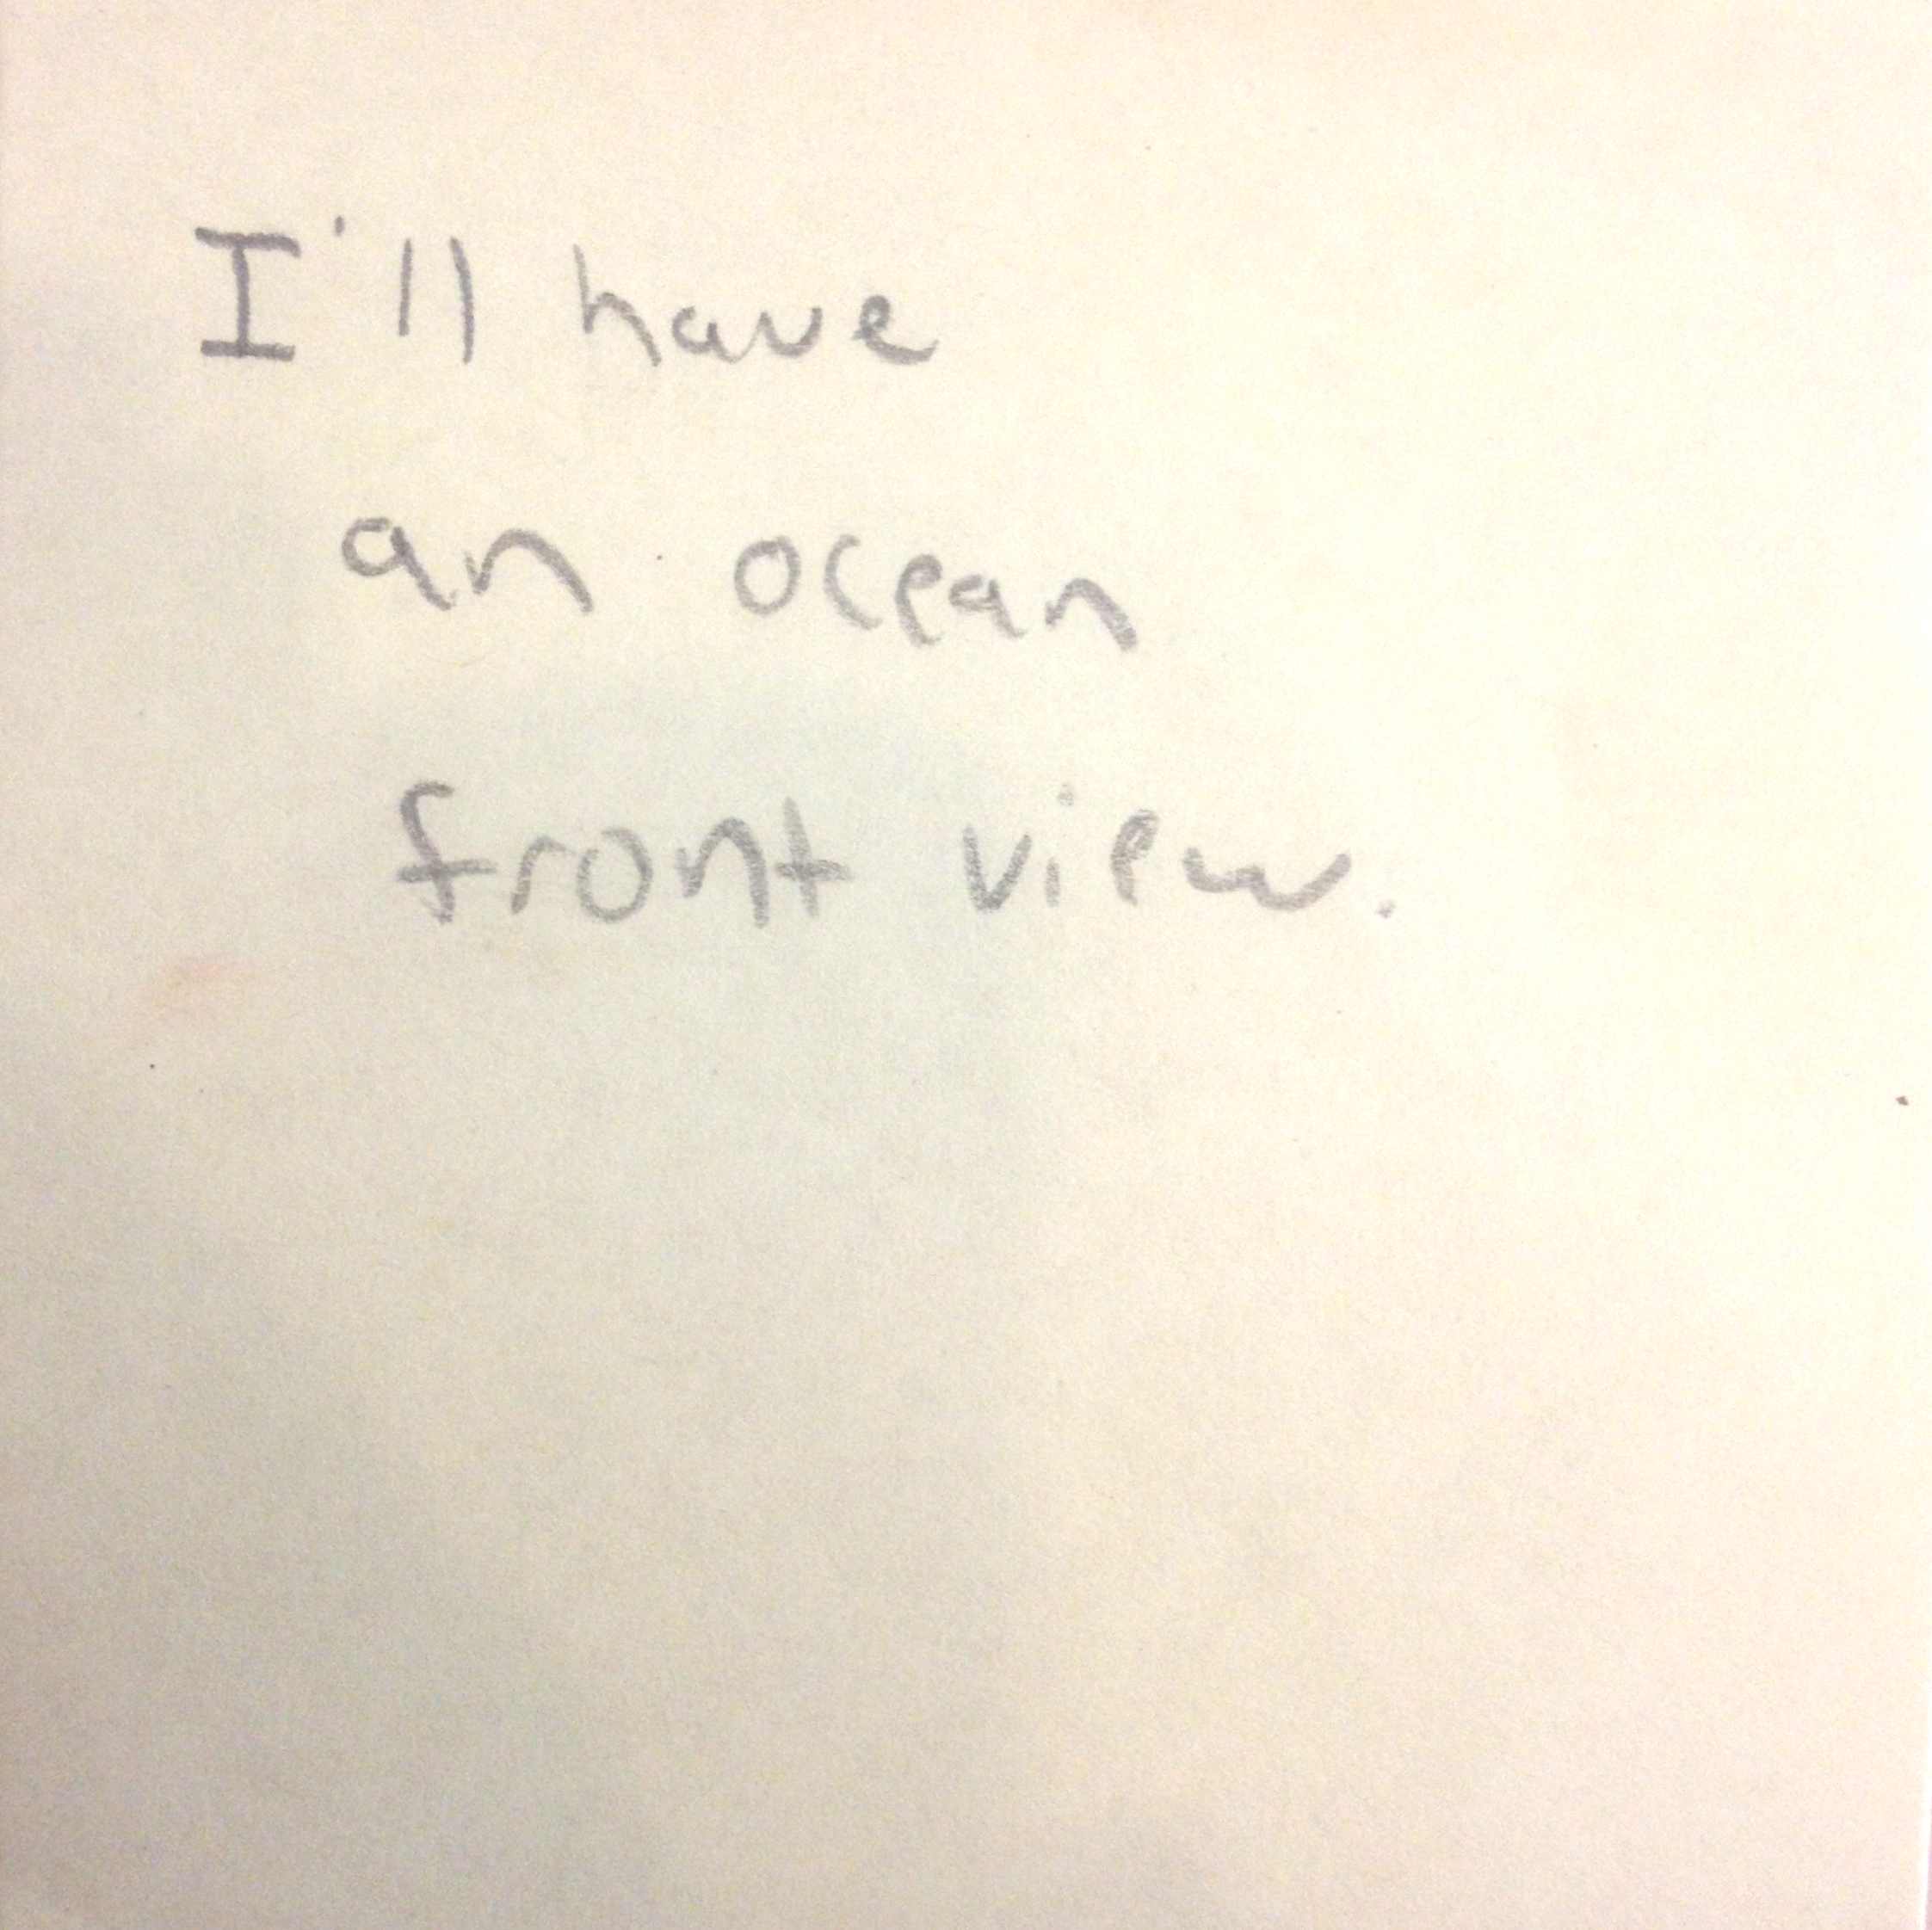 I'll have
an ocean
front view.